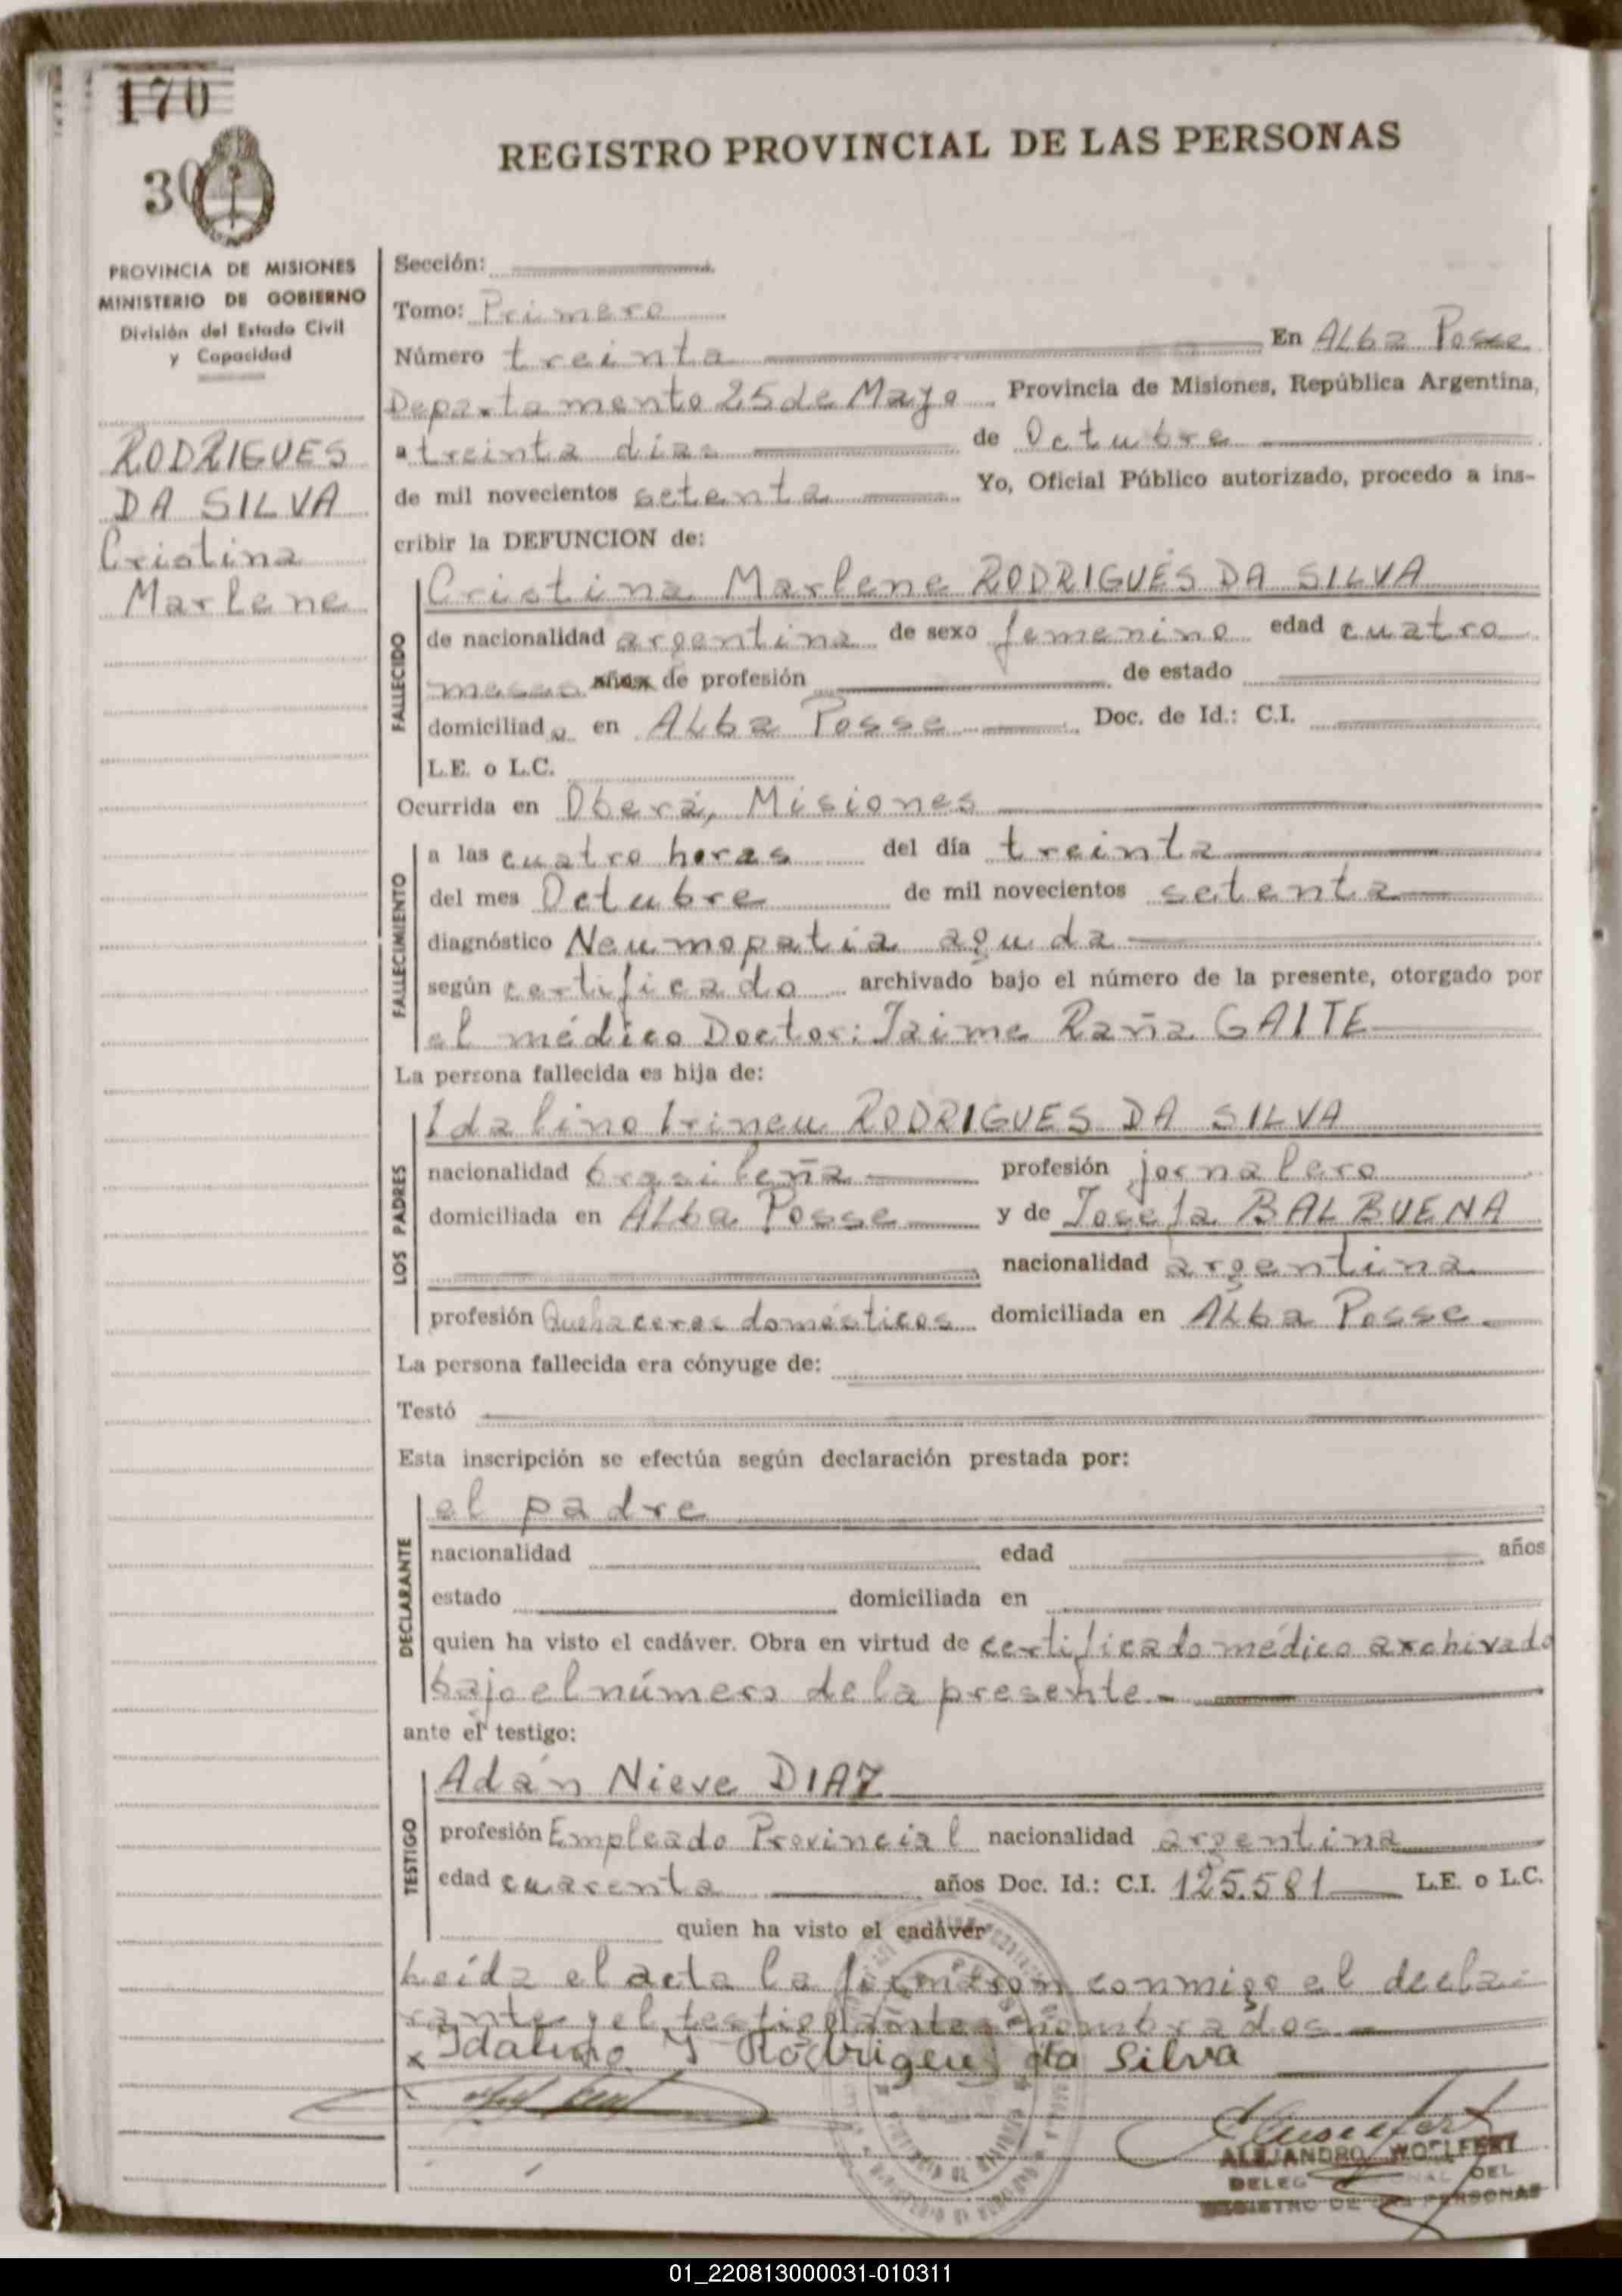 170
30
REGISTRO PROVINCIAL DE LAS PERSONAS
PROVINCIA DE MISIONES
MINISTERIO DE GOBIERNO
División del Estado Civil
y Capacidad
RODRIGUES
DA SILVA
Cristina
Marlene
Sección:
Tomo: Primero
Número treinta En Alba Posse
Departamento 25 de Mayo Provincia de Misiones, República Argentina,
a treinta días de Octubre
de mil novecientos setenta Yo, Oficial Público autorizado, procedo a ins-
cribir la DEFUNCION de:
FALLECIDO
Cristina Marlene RODRIGUES DA SILVA
de nacionalidad argentina de sexo femenino edad cuatro
meses años de profesión de estado
domiciliada en Alba Posse Doc. de Id.: C.I.
L.E. o L.C.
Ocurrida en Oberá, Misiones
FALLECIMIENTO
a las cuatro horas del día treinta
del mes Octubre de mil novecientos setenta
diagnóstico Neumopatia aguda
según certificado archivado bajo el número de la presente, otorgado por
el médico Doctor: Jaime Raña GAITE
La persona fallecida es hija de:
LOS PADRES
Idalino Irineu RODRIGUES DA SILVA
nacionalidad brasileña profesión jornalero
domiciliada en Alba Posse y de Josefa BALBUENA
nacionalidad argentina
profesión Quehaceres domésticos domiciliada en Alba Posse.
La persona fallecida era cónyuge de:
Testó
Esta inscripción se efectúa según declaración prestada por:
DECLARANTE
el padre
nacionalidad edad años
estado domiciliada en
quien ha visto el cadáver. Obra en virtud de certificado médico archivado
bajo el número de la presente.-
ante el testigo:
TESTIGO
Adán Nieve DIAZ
profesión Empleado Provincial nacionalidad argentina
edad cuarenta años Doc. Id.: C.I. 125.581 L.E. o L.C.
quien ha visto el cadáver
Leída el acta la firmaron conmigo el decla-
rante y el testigo antes nombrados.-
x Idalino I Rodrigeus da Silva
ALEJANDRO WOLFERT
DEL
REGISTRO DE LAS PERSONAS
01_220813000031-010311